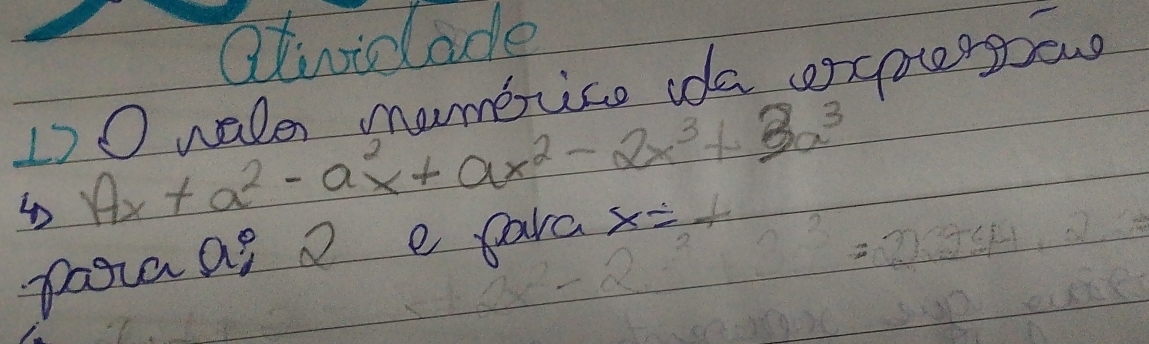 Atividade
1) O valor numérico da expressão
Ax + a² - a²x + ax² - 2x³ + 3a³
para a: 2 e para x =